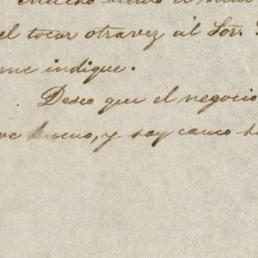 el tocar otra vez al Sor.
me indique.
Deseo que el negocio
bueno, y soy como